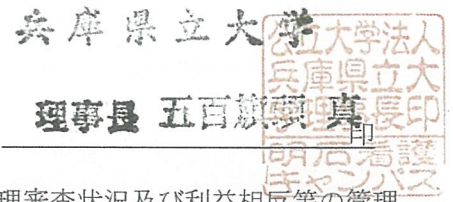 兵庫県立大学
理事長 五百旗頭 真
印
公立大学法人
兵庫県立大
学理事長印
明石看護
キャンパス
理審査状況及び利益相反等の管理